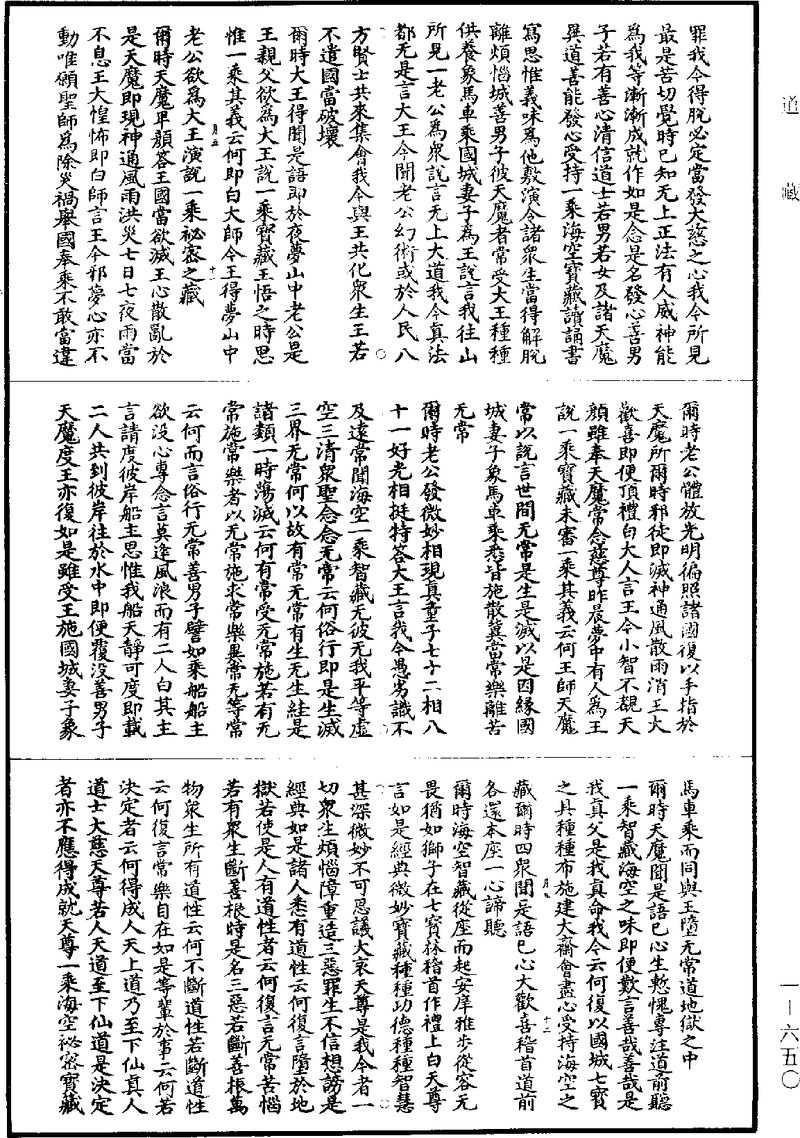 道藏
罪我今得脫必定當發大慈之心我今所見
最是苦切覺時已知无上正法有人威神能
為我等漸漸成就作如是念是名發心善男
子若有善心清信道士若男若女及諸天魔
異道善能發心受持一乘海空寶藏讀誦書
寫思惟義味為他敷演令諸衆生當得解脫
離煩惱城善男子彼天魔者常受大王種種
供養象馬車乘國城妻子為王說言我往山
所見一老公為衆說言无上大道我今真法
都无是言大王今聞老公幻術或於人民八
方賢士共來集會我今與王共化衆生王若
不遣國當破壞
爾時大王得聞是語即於夜夢山中老公是
王親父欲為大王說一乘寶藏王悟之時思
惟一乘其義云何即白大師今王得夢山中
老公欲為大王演說一乘祕密之藏
爾時天魔卑顏答王國當欲滅王心散亂於
是天魔即現神通風雨洪災七日七夜雨當
不息王大惶怖即白師言王今邪夢心亦不
動唯願聖師為除災禍舉國奉乘不敢當違
爾時老公體放光明徧照諸國復以手指於
天魔所爾時邪徒即滅神通風散雨消王大
歡喜即便頂禮白大人言王今小智不覩天
顏雖奉天魔常念慈尊昨晨夢中有人為王
說一乘寶藏未審一乘其義云何王師天魔
常以說言世間无常是生是滅以是因緣國
城妻子象馬車乘悉皆施散冀當常樂離苦
无常
爾時老公發微妙相現真童子七十二相八
十一好光相挺特答大王言我今愚劣識不
及遠常聞海空一乘智藏无彼无我平等虛
空三清衆聖念念无常云何俗行即是生滅
三界无常何以故有常无常有生无生絓是
諸類一時蕩滅云何有常受无常施若有无
常施常樂者以无常施求常樂果常无等常
云何而言俗行无常善男子譬如乘船船主
欲没心專念言莫逢風浪而有二人白其主
言請度彼岸船主思惟我船天静可度即載
二人共到彼岸往於水中即便覆没善男子
天魔度王亦復如是雖受王施國城妻子象
馬車乘而同與王墮无常道地獄之中
爾時天魔聞是語已心生慙愧專注道前聽
一乘智藏海空之味即便歎言善哉善哉是
我真父是我真命我今云何復以國城七寶
之具種種布施建大齋會盡心受持海空之
藏爾時四衆聞是語已心大歡喜稽首道前
各還本座一心諦聽
爾時海空智藏從座而起安庠雅步從容无
畏猶如獅子在七寶林稽首作禮上白天尊
言如是經典微妙寶藏種種功德種種智慧
甚深微妙不可思議大哀天尊是我今者一
切衆生煩惱障重造三惡罪生不信想謗是
經典如是諸人悉有道性云何復言墮於地
獄若使是人有道性者云何復言无常苦惱
若有衆生斷善根時是名三惡若斷善根萬
物衆生所有道性云何不斷道性若斷道性
云何復言常樂自在如是等輩於事云何若
決定者云何得成人天上道乃至下仙真人
道士大慈天尊若人天道至下仙道是決定
者亦不應得成就天尊一乘海空祕密寶藏
一—六五〇